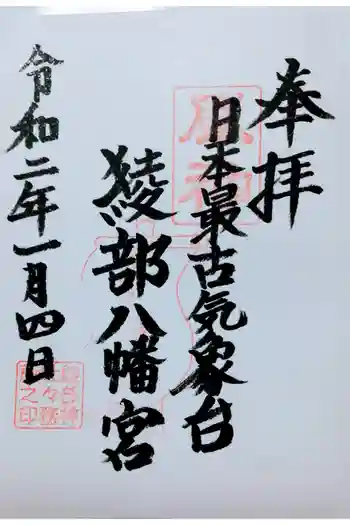 奉拝
日本最古気象台
綾部八幡宮
令和二年一月四日